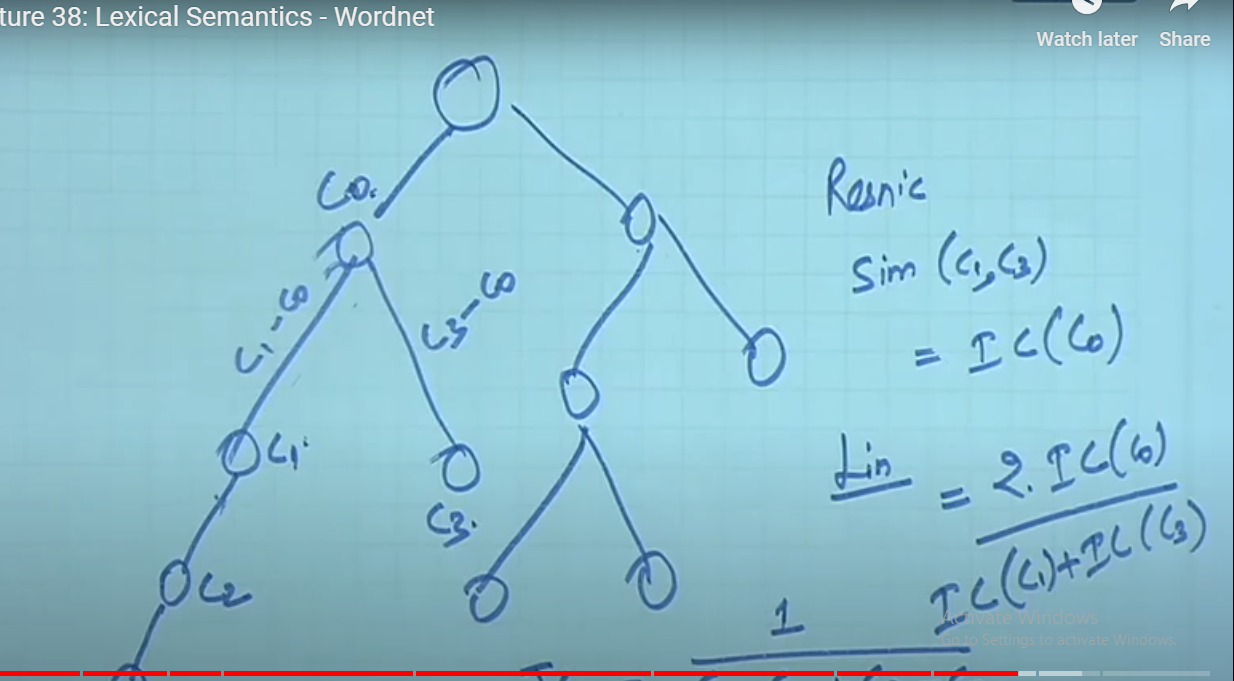 ture 38: Lexical Semantics - Wordnet
Watch later Share
C0.
C1-C0
C3-C0
C1.
C3.
C2
Resnic
Sim (C1,C3)
= IC(C0)
Lin = 2.IC(C0)
IC(C1)+IC(C3)
1
Activate Windows
Go to Settings to activate Windows.